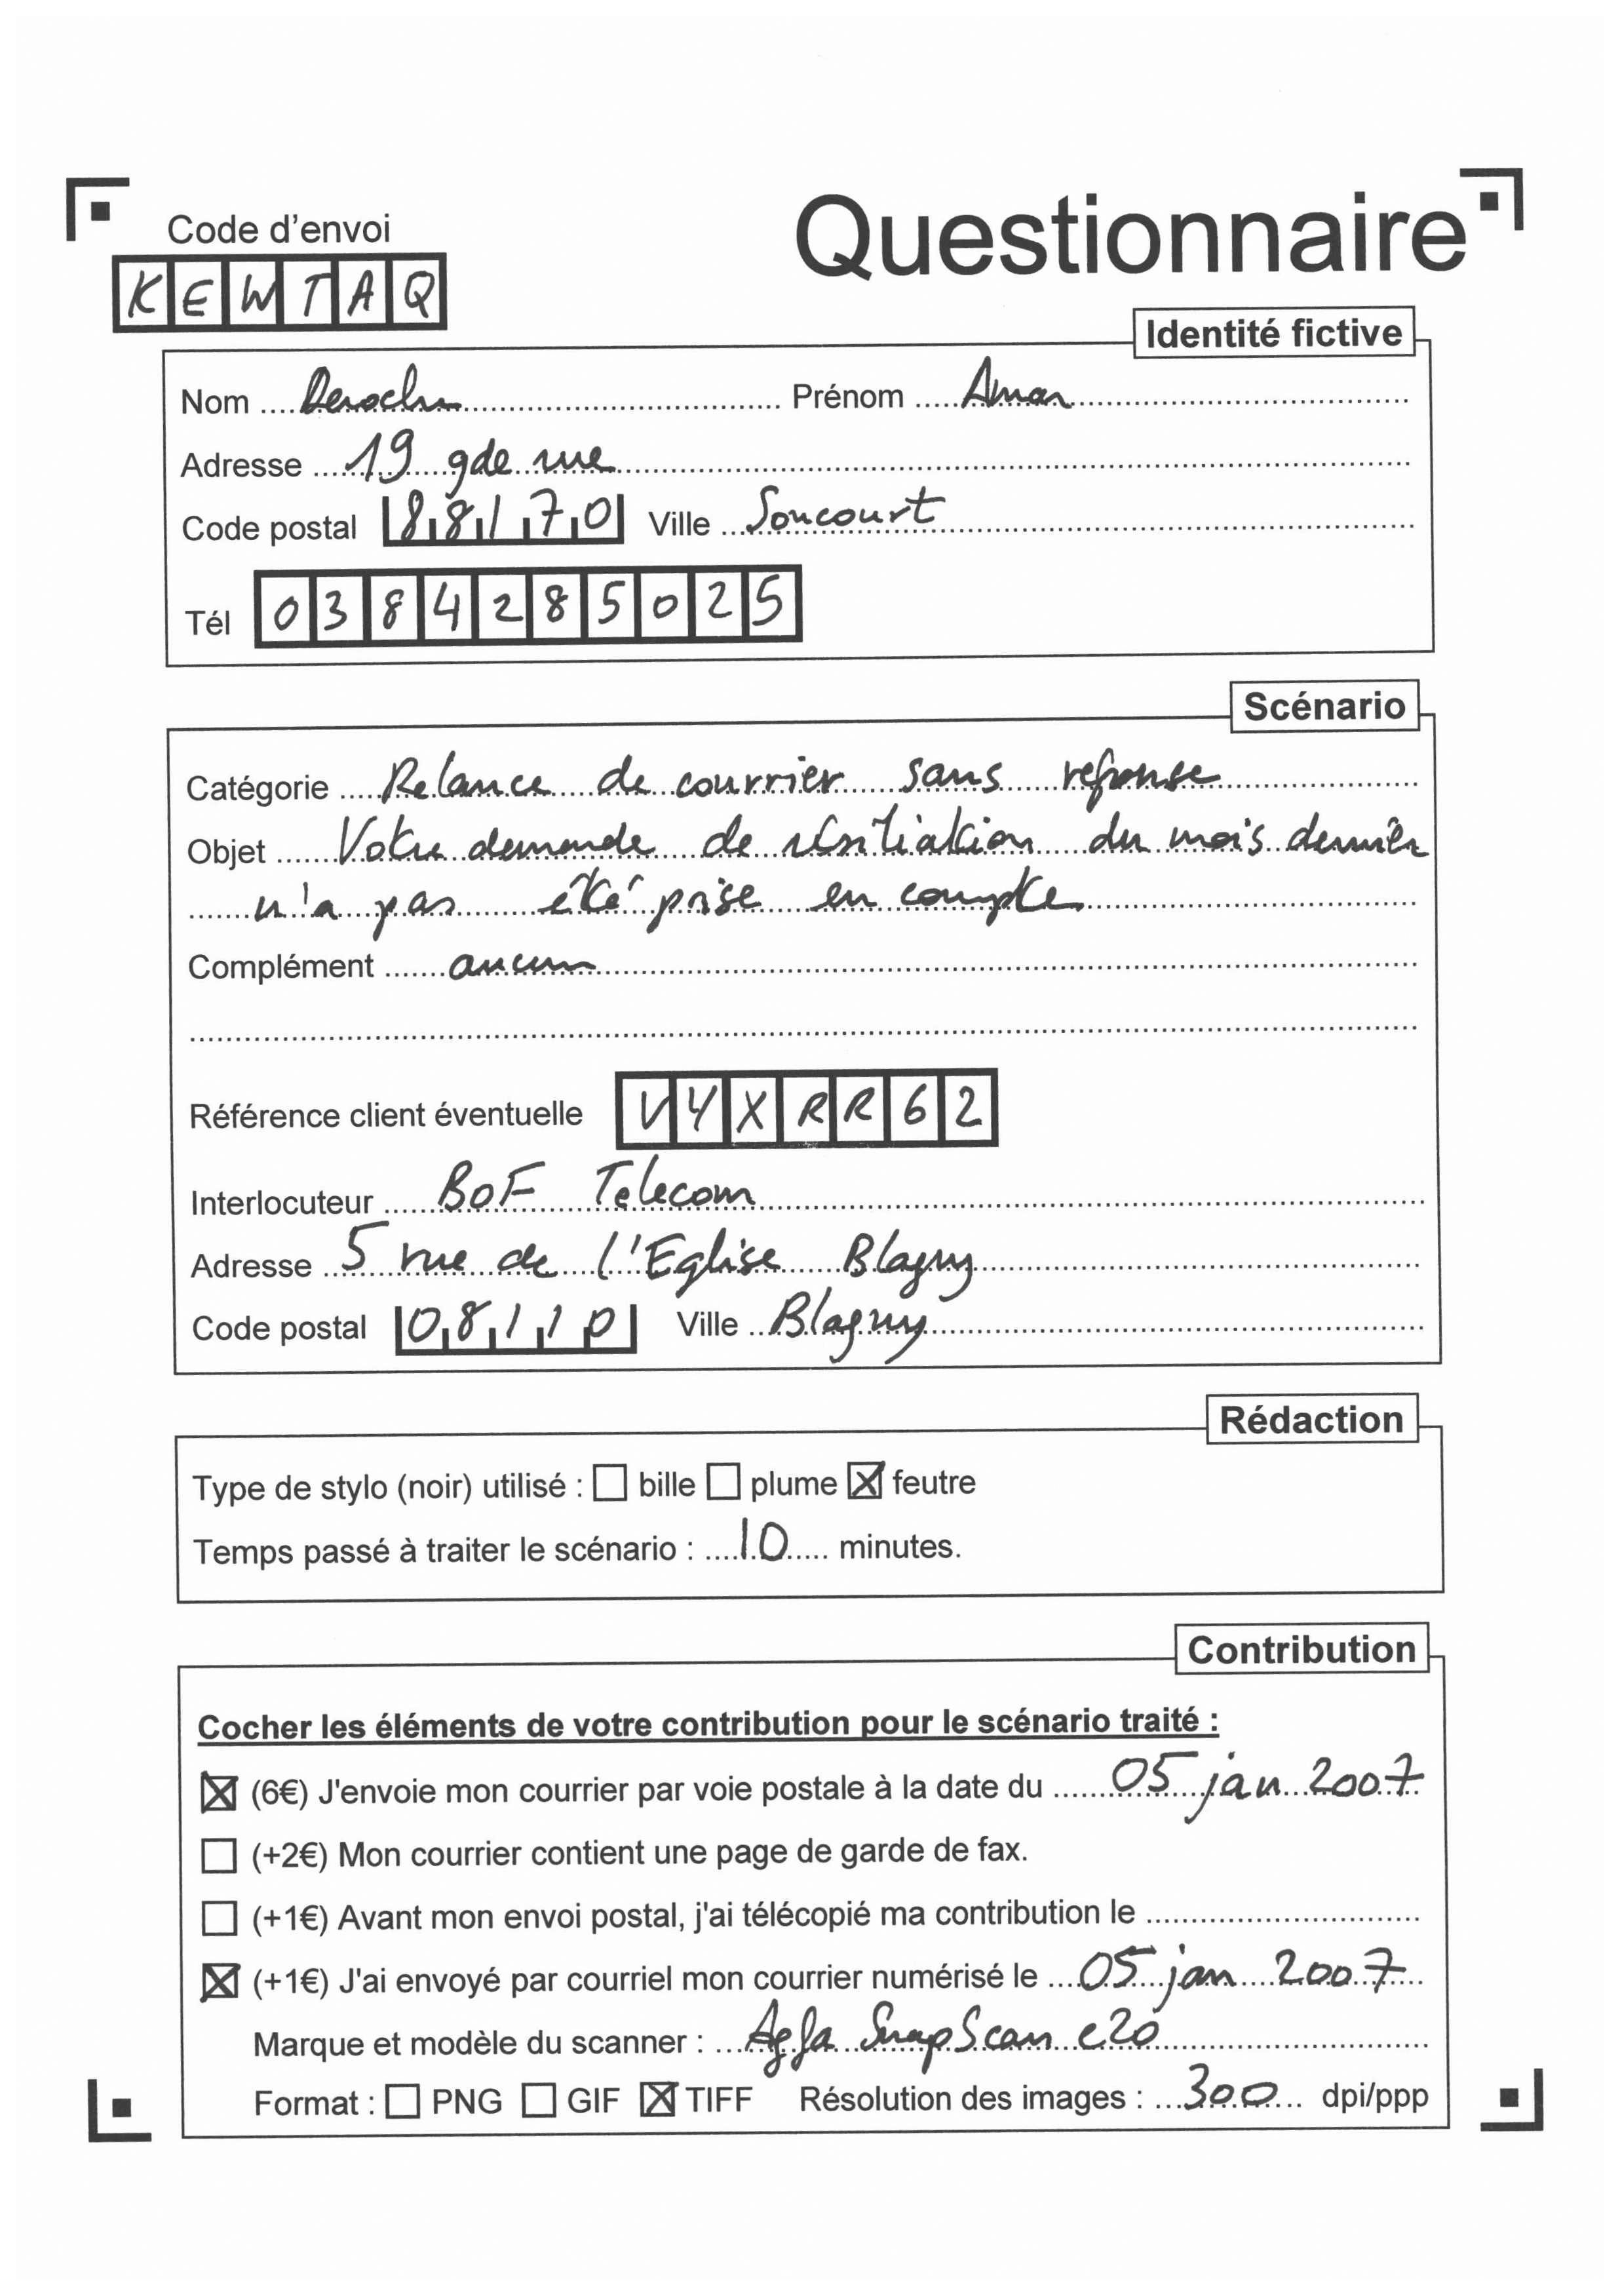 Code d'envoi
Questionnaire
KEWTAQ
Identité fictive
Nom Prénom Aman
Adresse 19 gde rue
Code postal 88170 Ville Soncourt
Tél 0384285025
Scénario
Catégorie Relance de courrier sans reponse
Objet Votre demande de résiliation du mois dernier
n'a pas été prise en compte
Complément aucun
Référence client éventuelle VYXRR62
Interlocuteur BoF Telecom
Adresse 5 rue de l'Eglise Blagny
Code postal 08110 Ville Blagny
Rédaction
Type de stylo (noir) utilisé : ☐ bille ☐ plume ☒ feutre
Temps passé à traiter le scénario : 10 minutes.
Contribution
Cocher les éléments de votre contribution pour le scénario traité :
☒ (6€) J'envoie mon courrier par voie postale à la date du 05 jan 2007
☐ (+2€) Mon courrier contient une page de garde de fax.
☐ (+1€) Avant mon envoi postal, j'ai télécopié ma contribution le
☒ (+1€) J'ai envoyé par courriel mon courrier numérisé le 05 jan 2007
Marque et modèle du scanner : Agfa SnapScan e20
Format : ☐ PNG ☐ GIF ☒ TIFF Résolution des images : 300 dpi/ppp